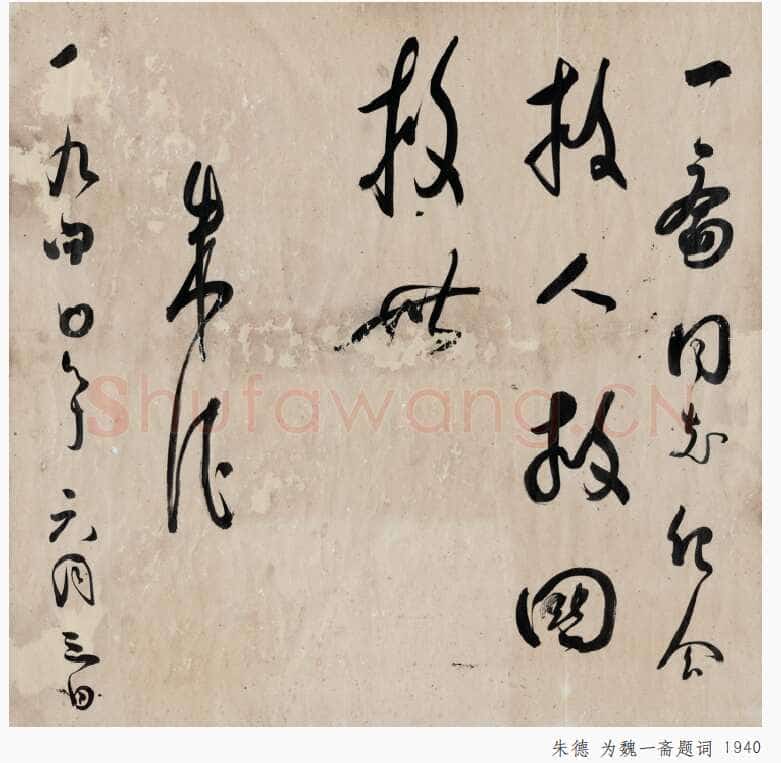 一斋同志紀念
救人救國
救世
朱德
一九四〇年六月三日
Shufawang.CN
朱德 为魏一斋题词 1940